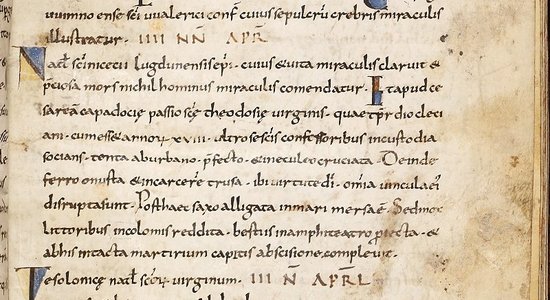 uuinno ense sci uualerici conf cuius sepulcru crebris miraculis
illustratur · IIII NŃ APR̄
Nat̄ sci nicecii lugdunensis epi · cuius & uita miraculis claruit &
p̄ciosa mors nihilhominus miraculis comendatur · Itapud ce
sarea͂ capadocie passio sce theodosie uirginis · quae t̄pr̄ diocleci
ani · cum ess& annor̄ XVIII · ultro se scis confessoribus incustodia
socians · tenta aburbano p̄fecto · & ineculeo cruciata · Deinde
ferro onusta & incarcere trusa · ibi uirtute di · om̄ia uincula ei
disruptasunt · Posthaec saxo alligata inmari mersa ē · Sed mox
littoribus incolomis reddita · bestiis inamphiteatro proiecta · &
abhis intacta martirium capitis abscisione compleuit ·
Tesolonice nat̄l scar̄ uirginum · III Ñ APRL̄